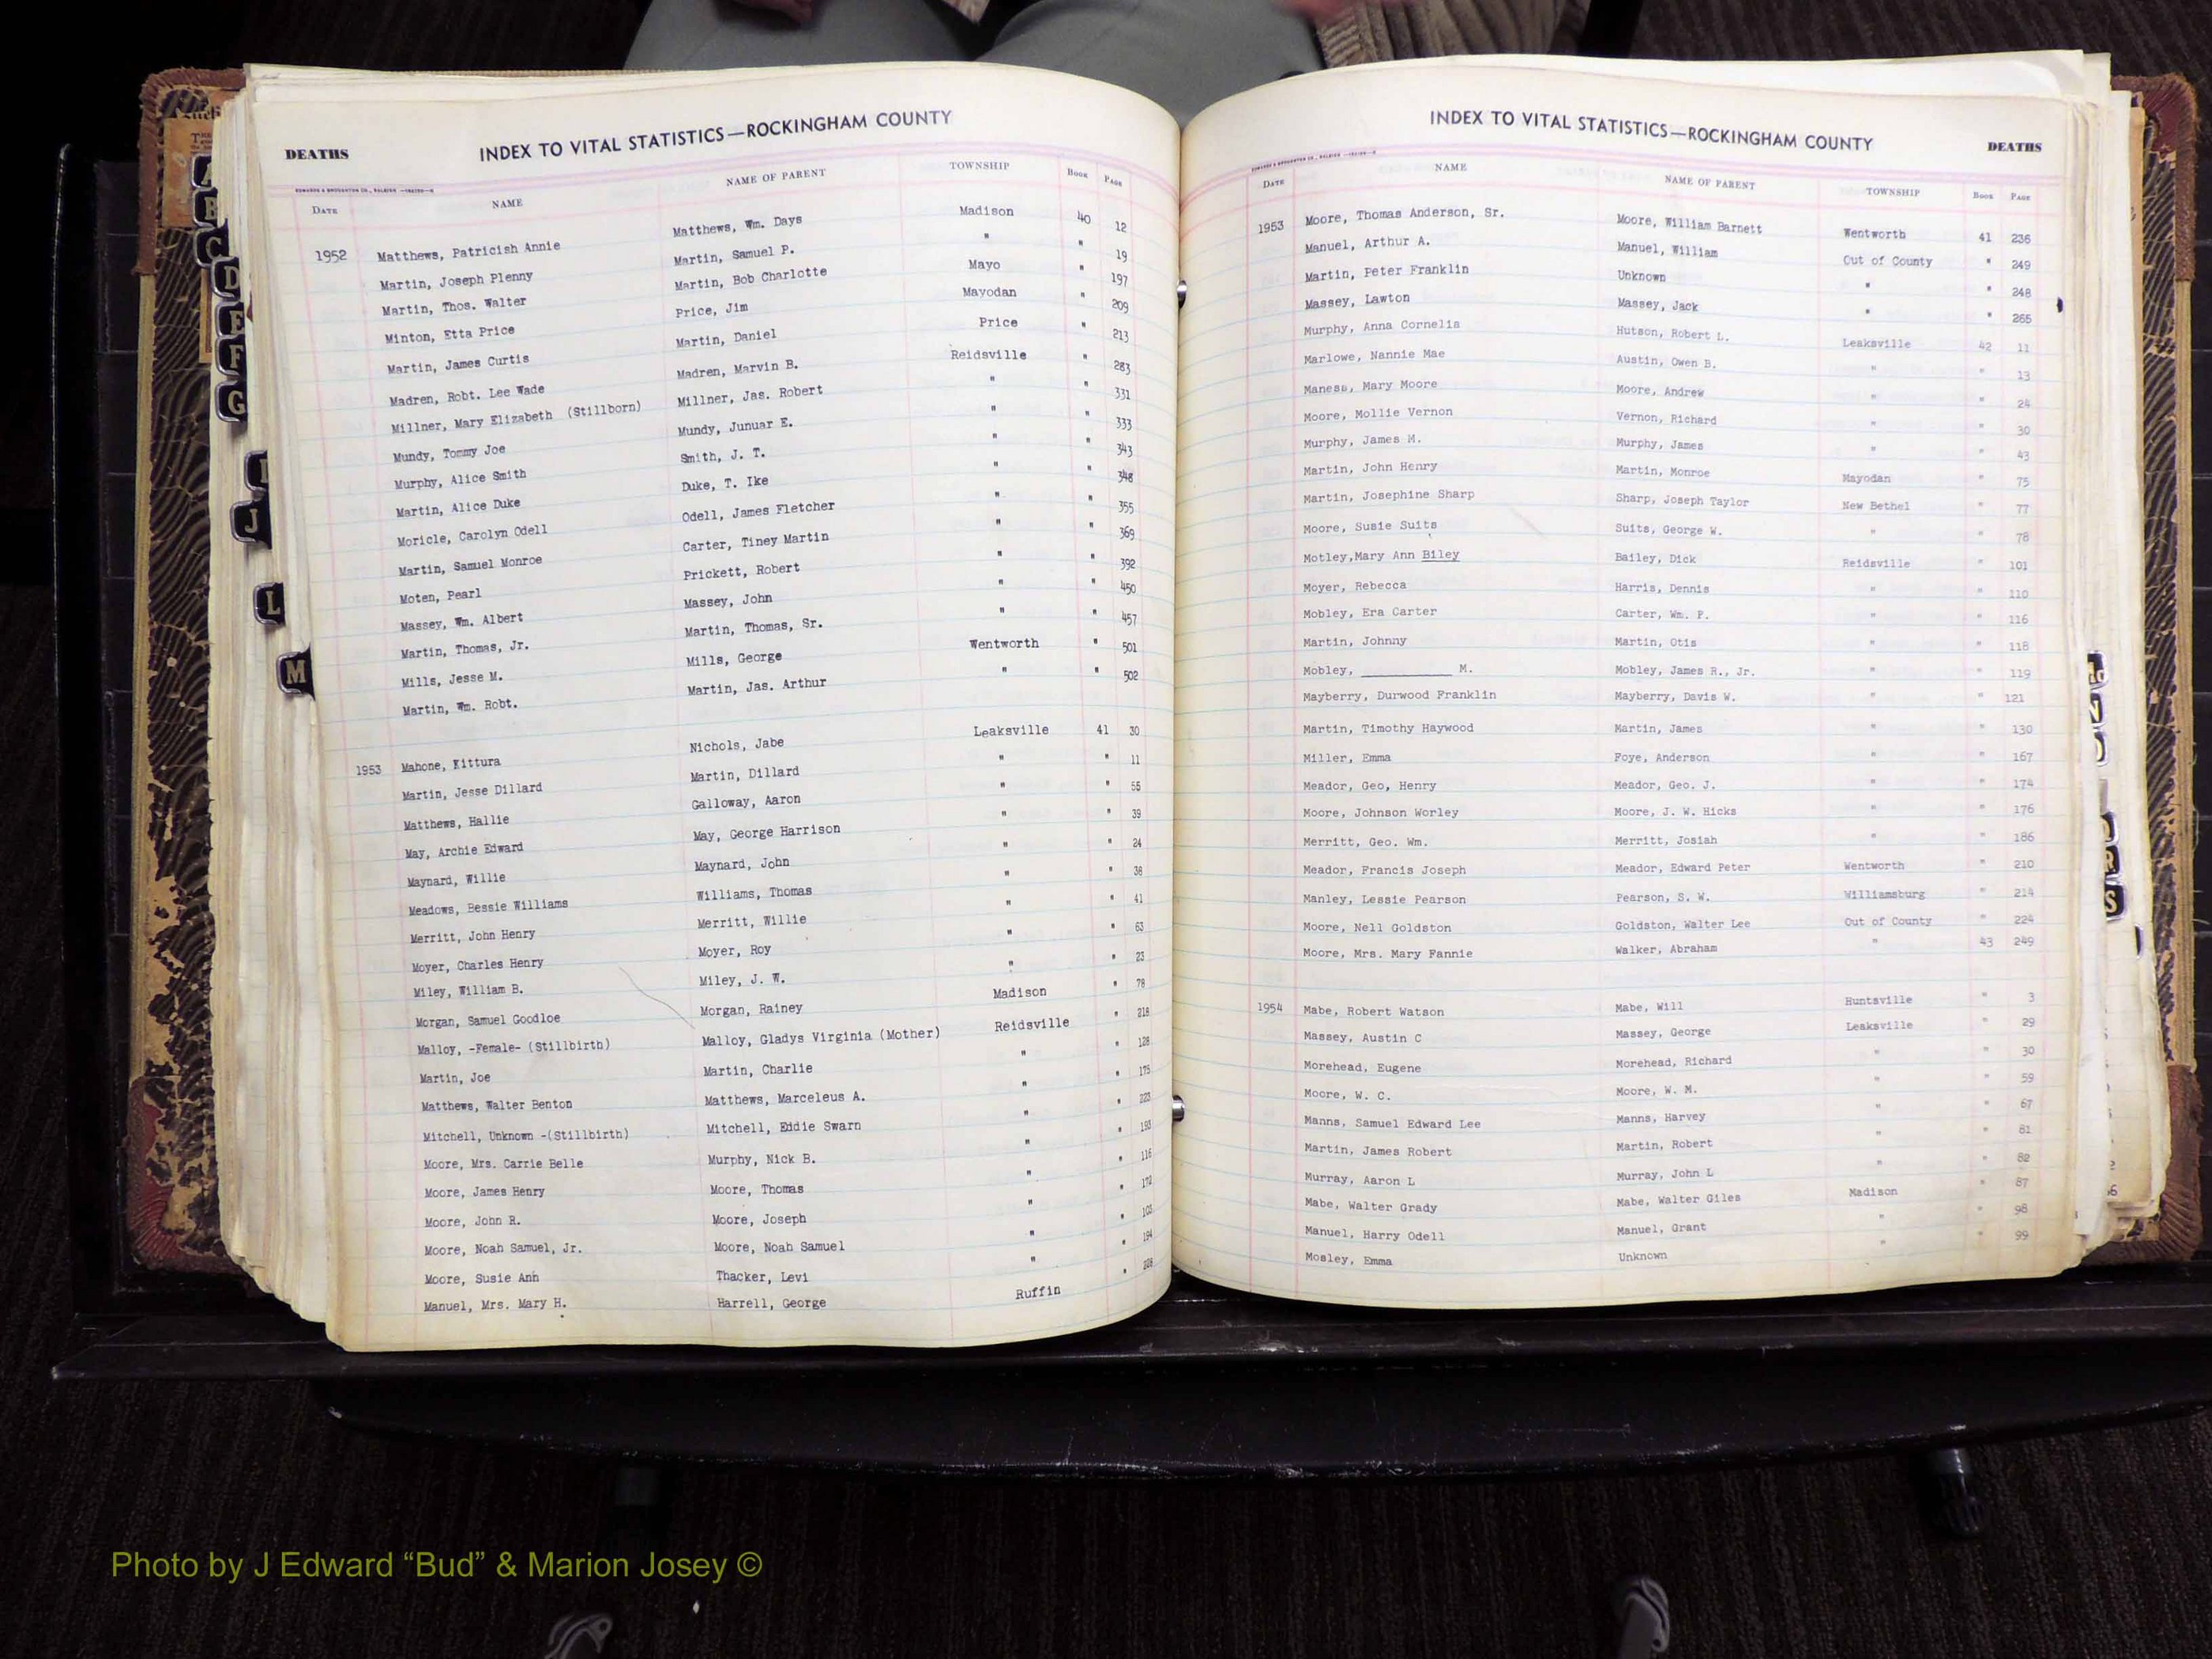 DEATHS
INDEX TO VITAL STATISTICS—ROCKINGHAM COUNTY
DATE NAME NAME OF PARENT TOWNSHIP BOOK PAGE
1952 Matthews, Patricish Annie Matthews, Wm. Days Madison 40 12
Martin, Joseph Plenny Martin, Samuel P. " " 19
Martin, Thos. Walter Martin, Bob Charlotte Mayo " 197
Minton, Etta Price Price, Jim Mayodan " 209
Martin, James Curtis Martin, Daniel Price " 213
Madren, Robt. Lee Wade Madren, Marvin B. Reidsville " 283
Millner, Mary Elizabeth (Stillborn) Millner, Jas. Robert " " 331
Mundy, Tommy Joe Mundy, Junuar E. " " 333
Murphy, Alice Smith Smith, J. T. " " 343
Martin, Alice Duke Duke, T. Ike " " 348
Moricle, Carolyn Odell Odell, James Fletcher " " 355
Martin, Samuel Monroe Carter, Tiney Martin " " 369
Moten, Pearl Prickett, Robert " " 392
Massey, Wm. Albert Massey, John " " 450
Martin, Thomas, Jr. Martin, Thomas, Sr. " " 457
Mills, Jesse M. Mills, George Wentworth " 501
Martin, Wm. Robt. Martin, Jas. Arthur " " 502
1953 Mahone, Kittura Nichols, Jabe Leaksville 41 30
Martin, Jesse Dillard Martin, Dillard " " 11
Matthews, Hallie Galloway, Aaron " " 55
May, Archie Edward May, George Harrison " " 39
Maynard, Willie Maynard, John " " 24
Meadows, Bessie Williams Williams, Thomas " " 38
Merritt, John Henry Merritt, Willie " " 41
Moyer, Charles Henry Moyer, Roy " " 63
Miley, William B. Miley, J. W. " " 23
Morgan, Samuel Goodloe Morgan, Rainey Madison " 78
Malloy, -Female- (Stillbirth) Malloy, Gladys Virginia (Mother) Reidsville " 218
Martin, Joe Martin, Charlie " " 128
Matthews, Walter Benton Matthews, Marceleus A. " " 175
Mitchell, Unknown -(Stillbirth) Mitchell, Eddie Swarn " " 223
Moore, Mrs. Carrie Belle Murphy, Nick B. " " 193
Moore, James Henry Moore, Thomas " " 116
Moore, John R. Moore, Joseph " "
Moore, Noah Samuel, Jr. Moore, Noah Samuel " "
Moore, Susie Ann Thacker, Levi " " 194
Manuel, Mrs. Mary H. Harrell, George Ruffin "
INDEX TO VITAL STATISTICS—ROCKINGHAM COUNTY
DEATHS
DATE NAME NAME OF PARENT TOWNSHIP BOOK PAGE
1953 Moore, Thomas Anderson, Sr. Moore, William Barnett Wentworth 41 236
Manuel, Arthur A. Manuel, William Out of County " 249
Martin, Peter Franklin Unknown " " 248
Massey, Lawton Massey, Jack " " 265
Murphy, Anna Cornelia Hutson, Robert L. Leaksville 42 11
Marlowe, Nannie Mae Austin, Owen B. " 13
Maness, Mary Moore Moore, Andrew " 24
Moore, Mollie Vernon Vernon, Richard " 30
Murphy, James M. Murphy, James " " 43
Martin, John Henry Martin, Monroe Mayodan " 75
Martin, Josephine Sharp Sharp, Joseph Taylor New Bethel " 77
Moore, Susie Suits Suits, George W. " " 78
Motley,Mary Ann Biley Bailey, Dick Reidsville " 101
Moyer, Rebecca Harris, Dennis " " 110
Mobley, Era Carter Carter, Wm. P. " " 116
Martin, Johnny Martin, Otis " " 118
Mobley, __________ M. Mobley, James R., Jr. " " 119
Mayberry, Durwood Franklin Mayberry, Davis W. " " 121
Martin, Timothy Haywood Martin, James " " 130
Miller, Emma Foye, Anderson " " 167
Meador, Geo, Henry Meador, Geo. J. " " 174
Moore, Johnson Worley Moore, J. W. Hicks " " 176
Merritt, Geo. Wm. Merritt, Josiah " " 186
Meador, Francis Joseph Meador, Edward Peter Wentworth " 210
Manley, Lessie Pearson Pearson, S. W. Williamsburg " 214
Moore, Nell Goldston Goldston, Walter Lee Out of County " 224
Moore, Mrs. Mary Fannie Walker, Abraham " 43 249
1954 Mabe, Robert Watson Mabe, Will Huntsville " 3
Massey, Austin C Massey, George Leaksville " 29
Morehead, Eugene Morehead, Richard " " 30
Moore, W. C. Moore, W. M. " " 59
Manns, Samuel Edward Lee Manns, Harvey " " 67
Martin, James Robert Martin, Robert " " 81
Murray, Aaron L Murray, John L " " 82
Mabe, Walter Grady Mabe, Walter Giles Madison " 87
Manuel, Harry Odell Manuel, Grant " " 98
Mosley, Emma Unknown " " 99
A
B
C
D
E
F
G
I
J
L
M
N
R
S
Photo by J Edward “Bud” & Marion Josey ©